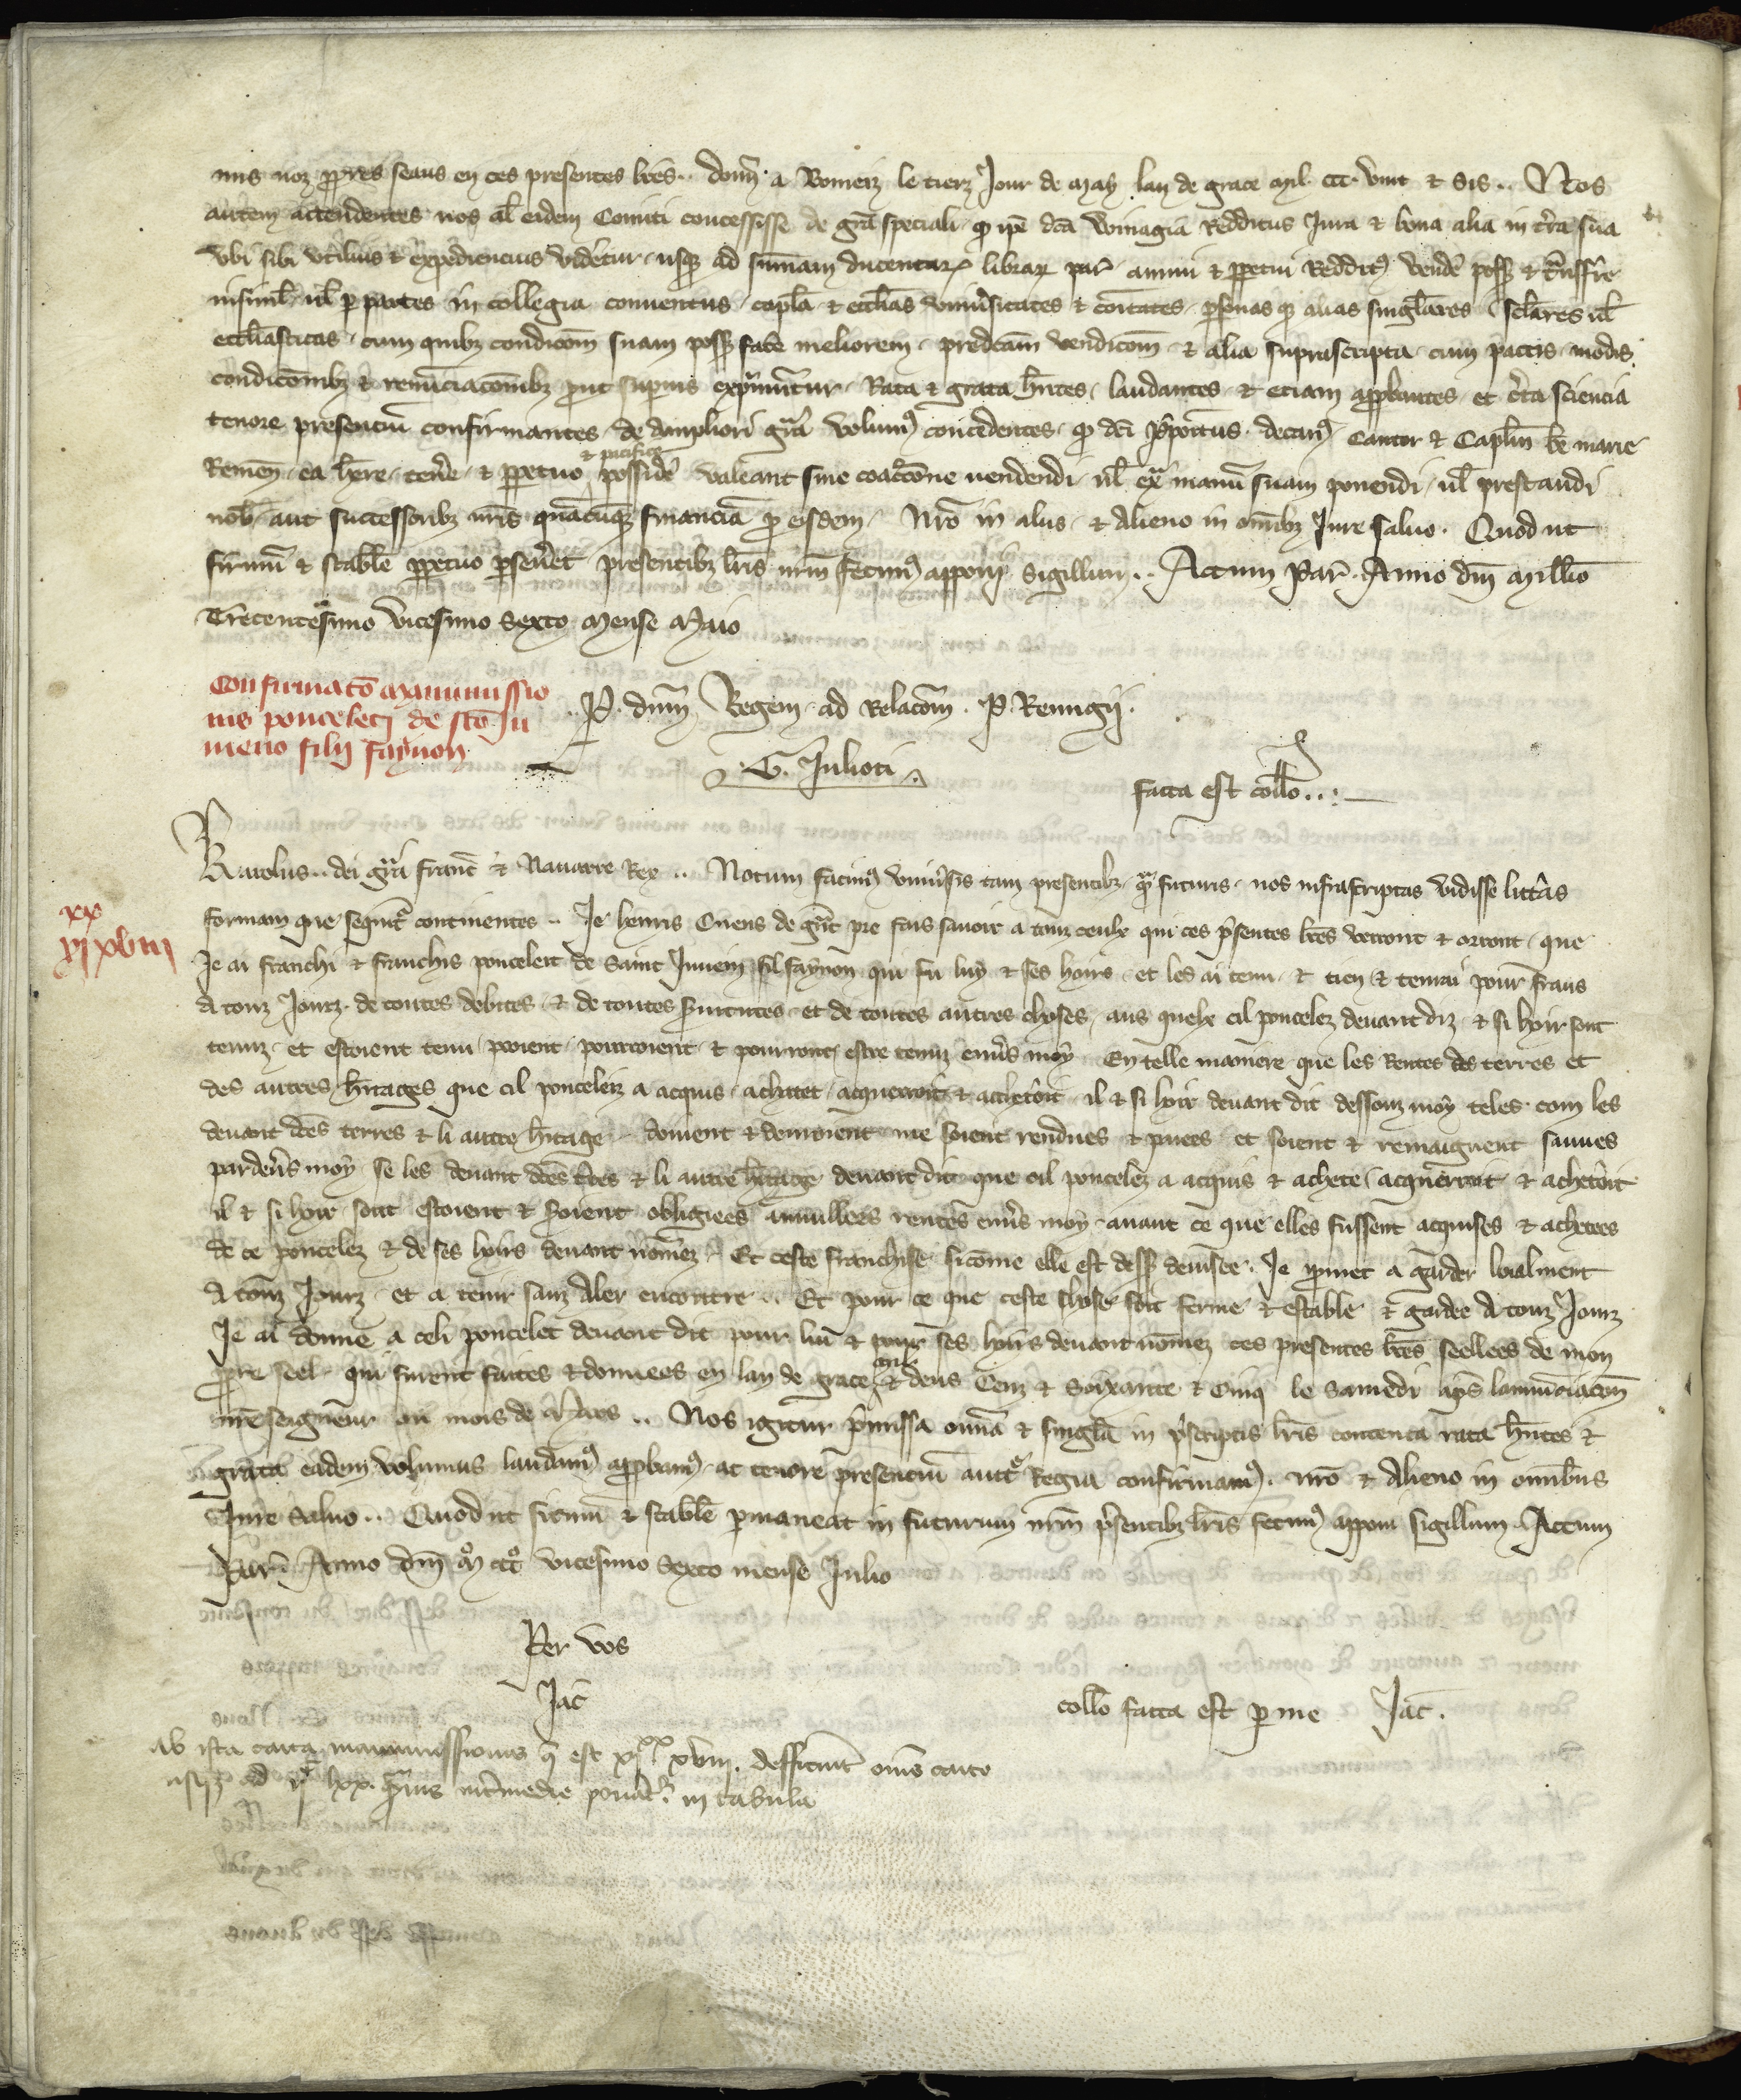 mis noz ppres seaus en ces presentes lres. donn. a Bomeiz le tierz Jour de May lan de grace Mil. CCC. vint & Sis.. Nos
autem attendentes nos al eidem Comiti concessisse de gra speciali q ipe dca Winagia Redditus Jura & bona alia in tra sua
Vbi sibi vtilius & expediencius videtur usq ad summam ducentar librar par annui & ppetui Reddit vende posss & tnsfre
insiml ul p partes in collegia conuentus capla & ecclias vniusitates & coitates psonas q alias singlares sclares ul
eccliasticas cum quibz condicom suam posss face meliorem predcam vendicom & alia suprascripta cum pactis modis
condiconibz & renunciaconibz put supius exprimuntur Rata & grata hntes laudantes & etiam appbantes et cta sciencia
tenore presencium confirmantes de ampliori gra volum concedentes q dci ppoitus decan Cantor & Caplm be marie
Remen ea hre tene & ppetuo & pacifice posside valeant sine coactone uendendi ul ex manu suam ponendi ul prestandi
nob aut successoribz nris quacuq financia p eisdem Nro in aliis & alieno in omibz Jure saluo. Quod ut
firmu & stabile ppetuo pseuet presentibz lris nrm fecim apponi Sigillum.. Actum Par. Anno dni Millio
Trecentesimo vicesimo Sexto Mense Maio
Confirmato Manumissio
nis ponceleti de sco Ju
meno filii faynon
P. dnm Regem ad Relacom. P. Remigii.
G. Julioti
facta est collo..
Karolus.. dei gra franc & Nauarre Rex.. Notum facim vniusis tam presentibz q futuris nos infrascriptas vidisse littas
xx
xi xviii
formam que sequit continentes.. Je henris Cuens de gnt pre fais sauoir a touz ceulx qui ces psentes lres verront & orront que
Je ai franchi & franchis poncelett de Saint Jumein fil faynon qui fu luy & ses hoirs et les ai tenu & tien & tenrai pour frans
A touz Jourz de toutes debites & de toutes seruitutes et de toutes autres choses aus quelx cil poncelez deuant diz & si hoir sont
tenuz et estoient tenu pooient pourroient & pourront estre tenuz enuers moy En telle maniere que les Rentes des terres et
des autres hitages que cil ponceleiz a acquis achatet acquerroit & achetoit il & si hoir deuant dit dessouz moy teles com les
deuant dces terres & li autre hitage doiuent & deuroient me soient rendues & paiees et soient & remaignent sauues
pardeus moy se les deuant dces tres & li autre hitage deuant dit que cil poncelez a acquis & achete acquerroit & achetoit
il & si hoir sont estoient & soient obligiees annullees rentes enus moy auant ce que elles fussent acquises & achetees
de ce poncelez & de ses hoirs deuant nomez Et ceste franchise sicome elle est dess deuisee Je pmet a garder loialment
A touz Jourz et a tenir sanz Aler encontre.. Et pour ce que ceste chose soit ferme & estable & gardee A touz Jourz
Je ai donne a celi poncelet deuant dit pour lui & pour ses hoirs deuant nomez ces presentes lres seellees de mon
ppre seel qui furent faites & donnees en lan de grace mil & deus Cenz & Soixante & Cinq le Samedi aps lannunciacom
nre seigneur ou mois de Mars.. Nos igitur pmissa omia & singla in pscriptis lris contenta rata hntes &
grata eadem volumus laudam appbam ac tenore presencium auct Regia confirmam. nro & Alieno in omibus
Jure saluo.. Quod ut firmu & stabile pmaneat in futurum nrm psentibz lris fecim apponi sigillum Actum
Par Anno dni Mo ccco vicesimo Sexto mense Julio
Per vos
Jac
collo facta est p me Jac.
ab ista carta manumissionis q est xi xx xviii. defficiunt oms carte
usq ad lxx. prius intmedie ponat in tabula